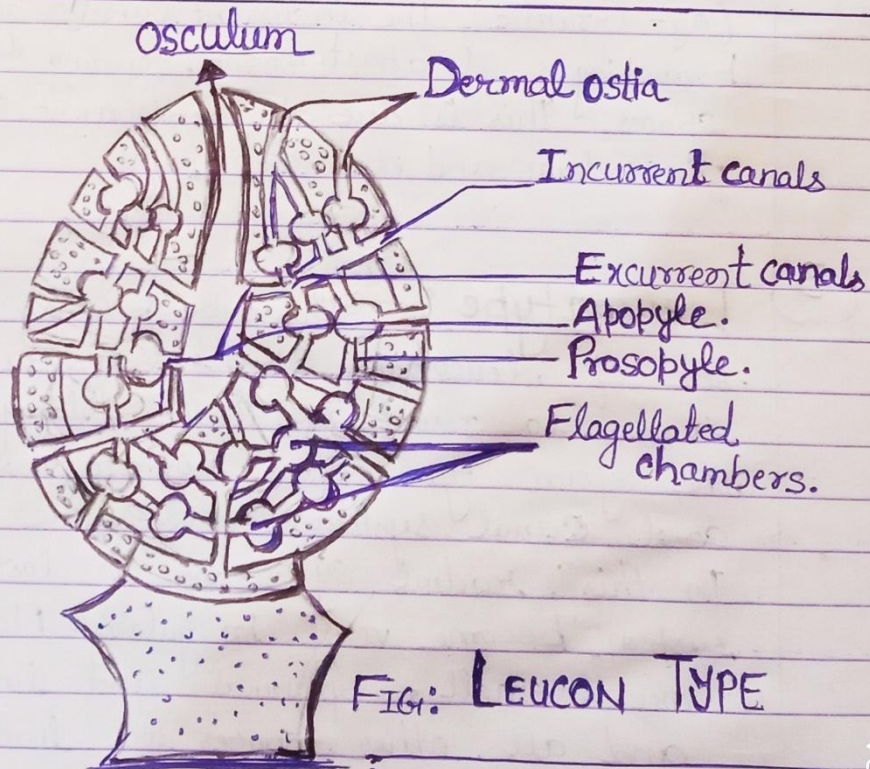 Osculum
Dermal ostia
Incurrent canals
Excurrent canals
Apopyle.
Prosopyle.
Flagellated
chambers.
FIG: LEUCON TYPE